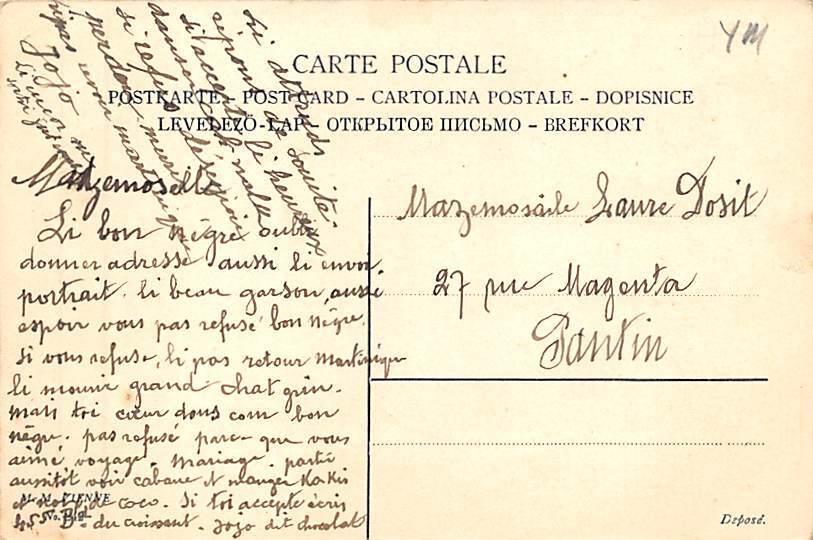 YM
CARTE POSTALE
POSTKARTE - POST CARD - CARTOLINA POSTALE - DOPISNICE
LEVELEZŐ-LAP - ОТКРЫТОЕ ПИСЬМО - BREFKORT
Mazemoselle
Li bon nègre oubli
donner adresse aussi li envoi
portrait. li beau garson, aussi
espoir vous pas refusé bon nègre.
si vous refuse, li pas retour Martinique
li mourir grand chat grin.
mais toi cœur dous com bon
nègre. pas refusé parce que vous
aimé voyage. Mariage. partir
aussitôt voir cabane et manger Kakis
et noix de coco. Si toi accepte écris
455 Bd du croissant. Jojo dit chocolat
Li attends
réponse de souite
si accepté li heureux
danser
si refus
perdon
Jojo
Mazemosèle Laure Dosit
27 rue Magenta
Pantin
M. M. VIENNE
No.
Deposé.